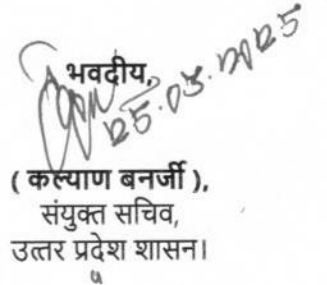 भवदीय,
25.03.2025
( कल्याण बनर्जी ),
संयुक्त सचिव,
उत्तर प्रदेश शासन।